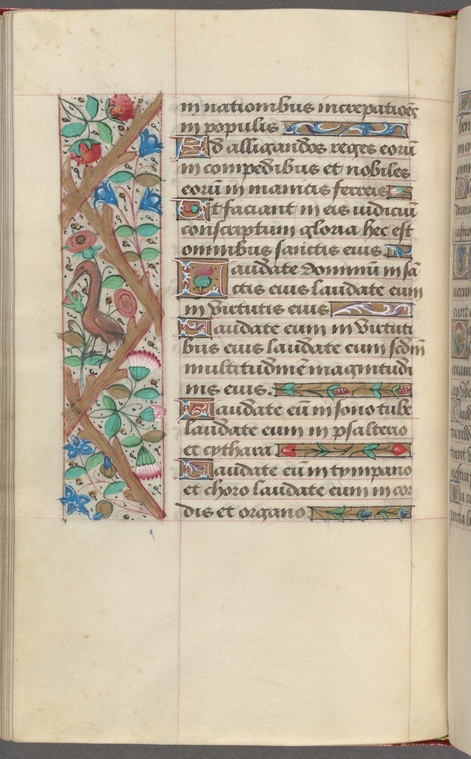 in nationibus increpatiões
in populis
Ad alligandos reges eorū
in compedibus et nobiles
eorū in manicis ferreis
Ut faciant in eis iudiciū
conscriptum gloria hec est
omnibus sanctis eius
Laudate dominū in sā
ctis eius laudate eum
in virtutis eius
Laudate eum in virtuti
bus eius laudate eum scdm̄
multitudinē magnitudi
nis eius.
Laudate eū in sono tube
laudate eum in psalterio
et cythara
Laudate eū in tympano
et choro laudate eum in cor
dis et organo